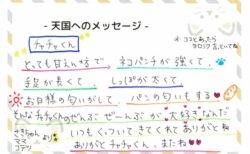 - 天国へのメッセージ -
チャチャくん
※ココとあったら
ヨロシク言といてね
とっても甘えん坊で ネコパンチが強くて、
手足が長くて、 しっぽが太くて
お日様の匂いがして パンの匂いもする
そんなチャチャのぜんぶ ぜーんぶが 大好きなんだ
いつもくっついてきてくれてありがとね
ありがとチャチャくん、またね
ママ